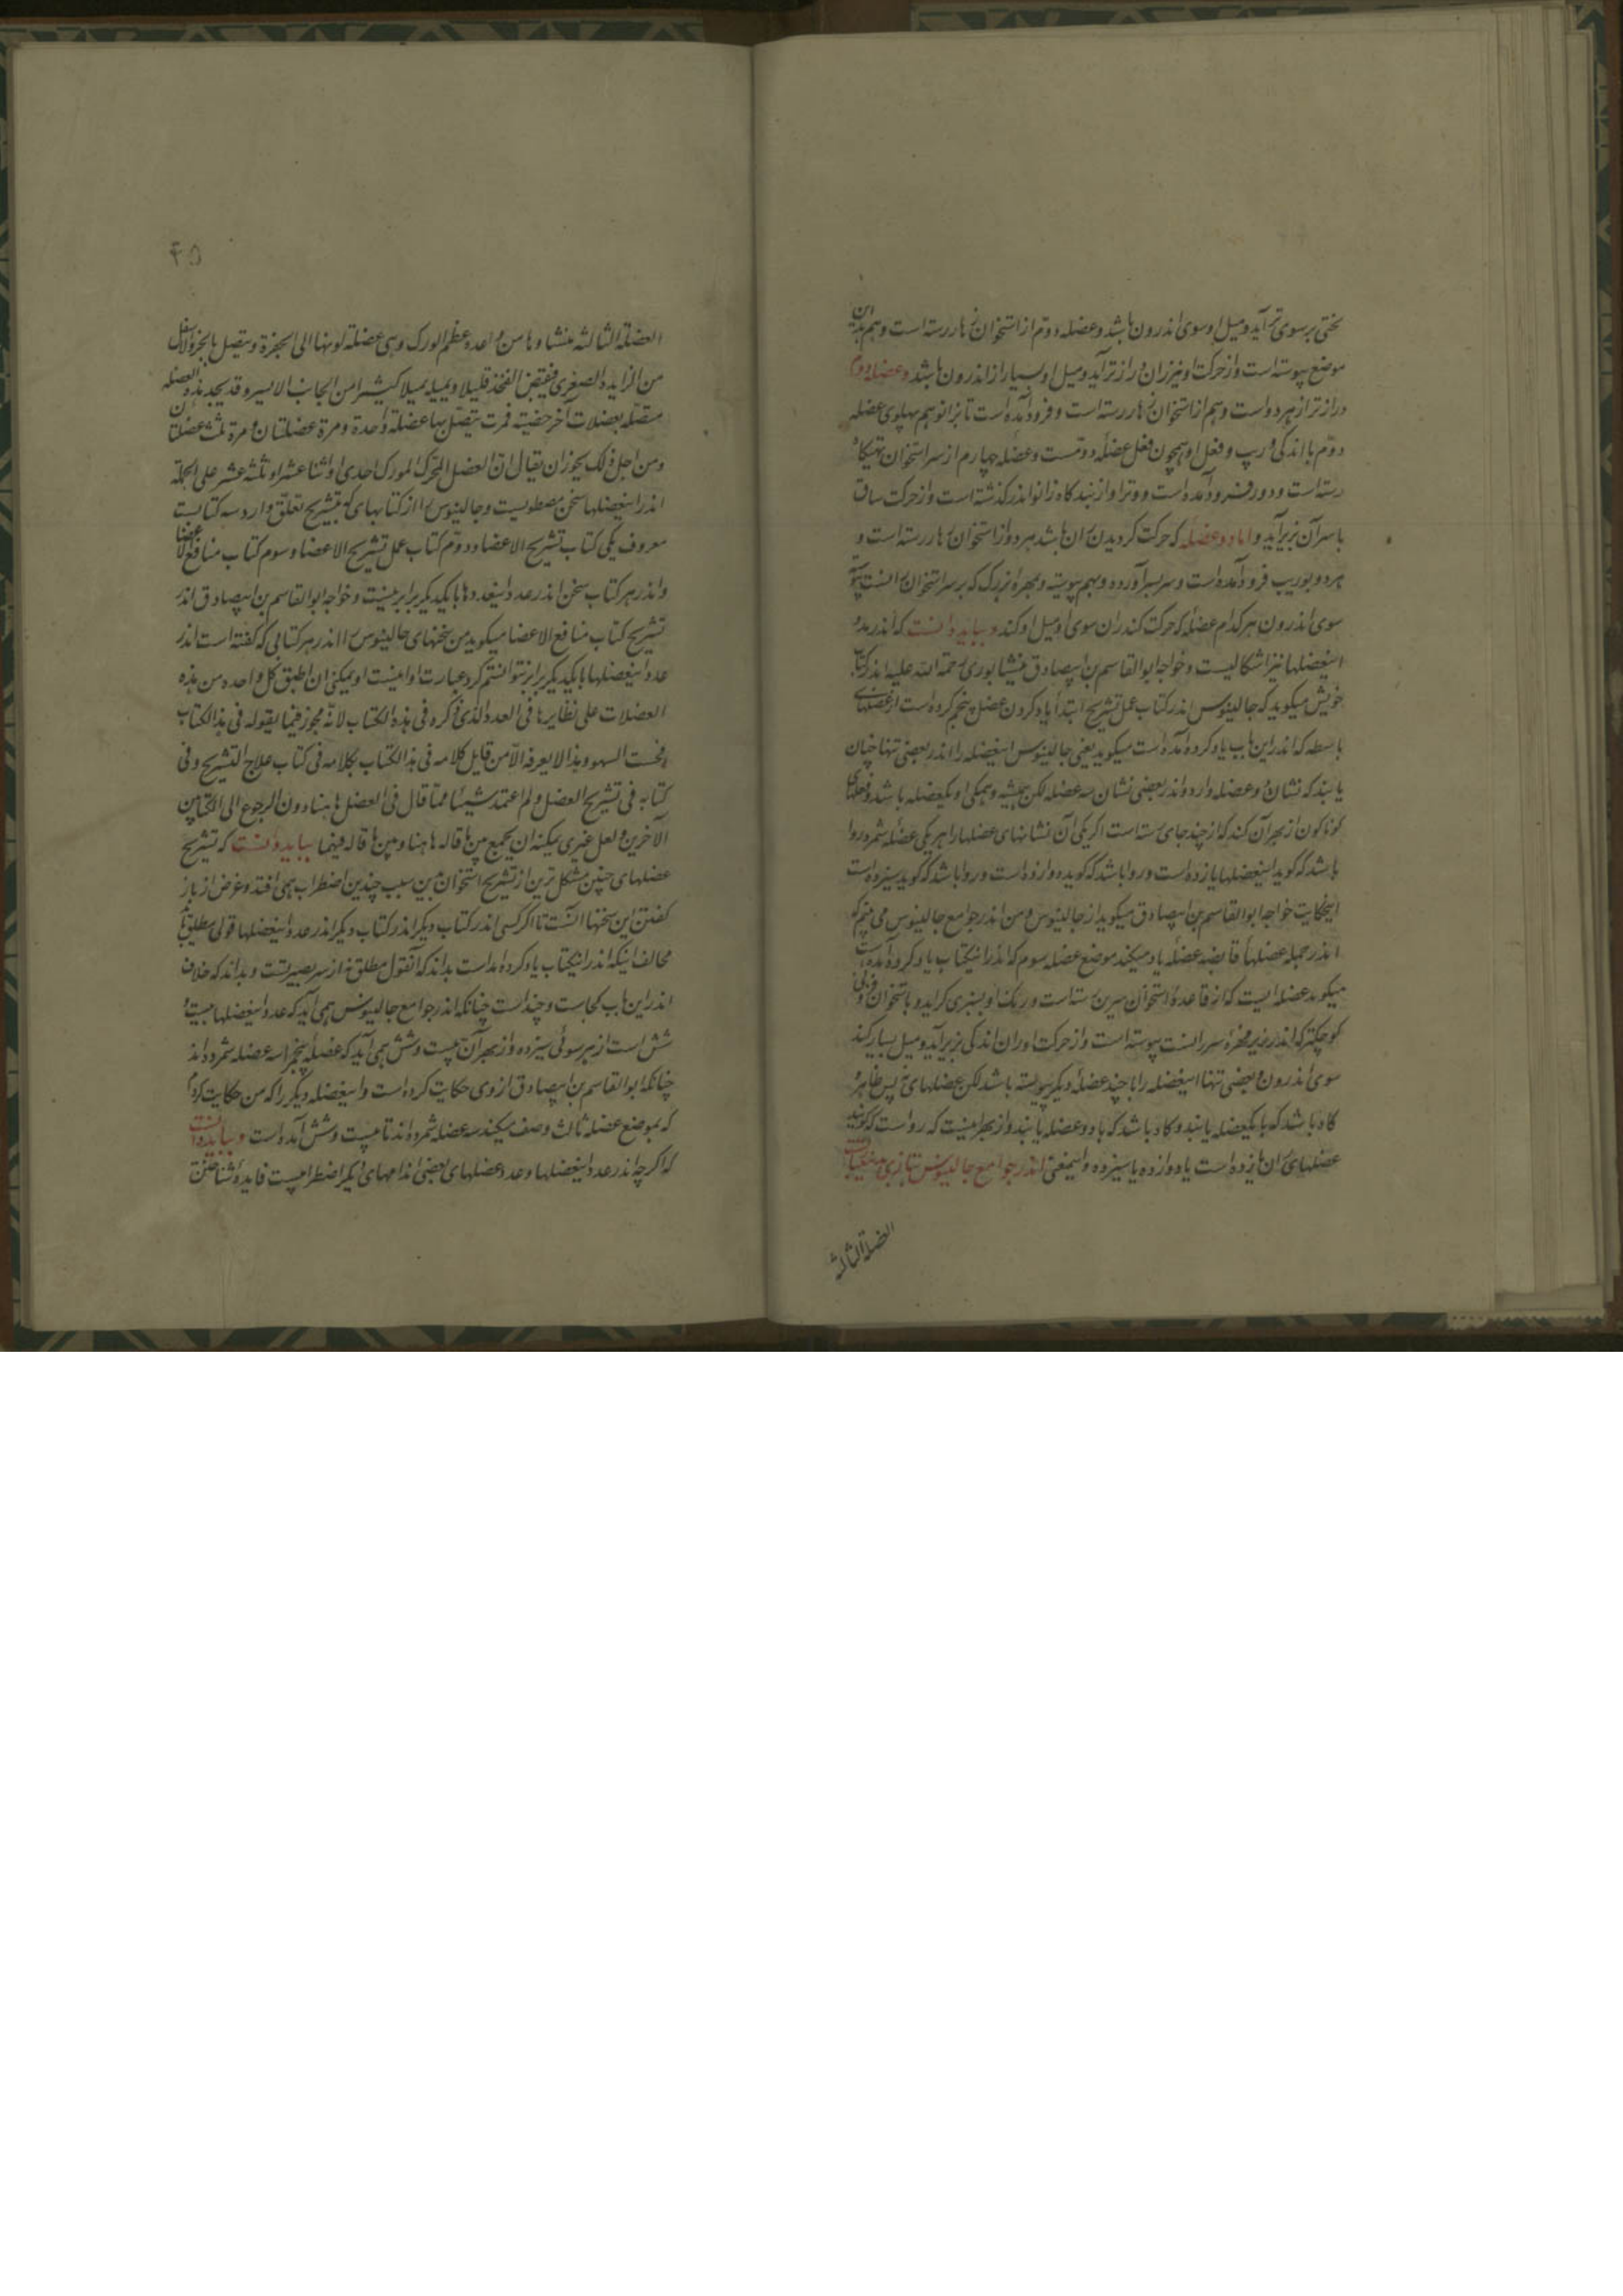 لختی بر سوی تر آید و میل او سوی اندرون باشد و عضله دوم از استخوان زهار رسته است و هم بدین
موضع پیوسته است و از حرکت او نیز ران فراز تر آید و میل او بسیار از اندرون باشد و عضله سوم
دراز تر از هر دو است و هم از استخوان زهار رسته است و فرود آمده است تا بزانو هم پهلوی عضله
دوم با اندکی وریب و فعل او همچون فعل عضله دومست و عضله چهارم از سر استخوان تهیکاه
رسته است و دور فرود آمده است و وتر او از بندکاه زانو اندر کذشته است و از حرکت ساق
با سر آن بزیر آید و اما دو عضله که حرکت کردیدن ران باشد هر دو از استخوان زهار رسته است و
هر دو بوریب فرود آمده است و سر بسر آورده و بهم پیوسته و بمهره بزرک که بر سر استخوان رانست پیوسته
سوی اندرون هر کدام عضله که حرکت کند ران سوی او میل او کند و بباید دانست که اندر عدد
اینعضلها نیز اشکالیست و خواجه ابو القاسم بن ابیصادق نیشابوری رحمة الله علیه اندر کتاب
خویش میکوید که جالینوس اندر کتاب عمل تشریح ابتدا یاد کردن عضل پنجم کرده است از عضلهای
باسطه که اندر این باب یاد کرده آمده است میکوید یعنی جالینوس اینعضله را اندر بعضی تنها چنان
یابند که نشان دو عضله دارد و اندر بعضی نشان سه عضله لکن همیشه و همکی او یکعضله باشد و فعلهای
کوناکون از بهر آن کند که از چند جای رسته است اکر یکی آن نشانهای عضلها را هر یکی عضله شمرد روا
باشد که کوید اینعضلها یازده است و روا باشد که کوید دوازده است و روا باشد که کوید سیزده است
اینحکایت خواجه ابو القاسم بن ابیصادق میکوید از جالینوس و من اندر جوامع جالینوس می بینم که
اندر جمله عضلها قابضه عضله یاد میکند موضع عضله سوم که اندر اینکتاب یاد کرده آمده است
میکوید عضله ایست که از قاعده استخوان سرین رسته است و رنک او بسبزی کراید و باستخوان فزونی
کوچکتر که اندر زیر مهره سر رانست پیوسته است و از حرکت او ران اندکی بزیر آید و میل بسیار کند
سوی اندرون و بعضی تنها اینعضله را با چند عضله دیکر پیوسته باشد لکن عضلهای پس ظاهر
کاه باشد که با یکعضله یابند و کاه باشد که با دو عضله یابند و از بهر اینست که رواست که کویند
عضلهای ران یازده است یا دوازده یا سیزده و اینمعنی اندر جوامع جالینوس بتازی
العضلة الثالثه
۴۵
العضلة الثالثه منشاوها من قاعدة عظم الورک وهی عضلة لونها الی الخضرة ویتصل بالجزو الاسفل
من الزایده الصغری فیقبض الفخذ قلیلا ویمیله میلا کثیرا من الجانب الایسر وقد یجد هذه العضله
متصله بعضلات آخر خفیة فمرت یتصل بها عضلة واحدة ومرة عضلتان ومرة ثلث عضلات
ومن اجل ذلک یجوز ان یقال ان العضل المحرک المورک احدی او اثنا عشر او ثلثه عشر علی الجملة
اندر اینعضلها سخن مضطربست و جالینوس را از کتابهای که بتشریح تعلق دارد سه کتابست
معروف یکی کتاب تشریح الاعضا و دوم کتاب عمل تشریح الاعضا و سوم کتاب منافع الاعضا
و اندر هر کتاب سخن اندر عدد اینعددها با یکدیکر برابر نیست و خواجه ابو القاسم بن ابیصادق اندر
تشریح کتاب منافع الاعضا میکوید من سخنهای جالینوس را اندر هر کتابی که کفته است اندر
عدد اینعضلها با یکدیکر برابر نتوانستم کرد عبارت او اینست لم یمکنی ان اطبق کل واحده من هذه
العضلات علی نظایرها فی العدد الذی ذکره فی هذه الکتاب لانه یجوز فیما یقوله فی هذا الکتاب
السهو وهذا لا یعرفه الا من قایل کلامه فی هذا الکتاب بکلامه فی کتاب علاج التشریح وفی
کتابه فی تشریح العضل ولم اعتمد شیئا مما قال فی العضل هاهنا دون الرجوع الی الکتابین
الآخرین ولعل غیری یمکنه ان یجمع بین ما قاله هاهنا وبین ما قاله فیها بباید دانست که تشریح
عضلهای چنین مشکل ترین از تشریح استخوان بین سبب چندین اضطراب همی افتد و غرض از باز
کفتن این سخنها آنست تا اکر کسی اندر کتاب دیکر اندر کتاب دیکر اندر عدد اینعضلها قولی مطلق یابد
مخالف اینکه اندر اینکتاب یاد کرده آمد است بداند که آنقول مطلق نه از سر بصیرتست و بداند که خلاف
اندر این باب کجاست و چند است چنانکه اندر جوامع جالینوس همی آید که عدد اینعضلها بیست و
شش است از هر سوئی سیزده و از بهر آن بیست و شش همی آید که عضله پنجم را سه عضله شمرده اند
چنانکه ابو القاسم بن ابیصادق از وی حکایت کرده است و اینعضله دیکر را که من حکایت کردم
که بموضع عضله ثالث وصف میکند سه عضله شمرده اند تا بیست و شش آمده است و بباید دانست
که اکر چه اندر عدد اینعضلها و عدد عضلهای بعضی اندامهای دیکر اضطرابیست فایده شناختن